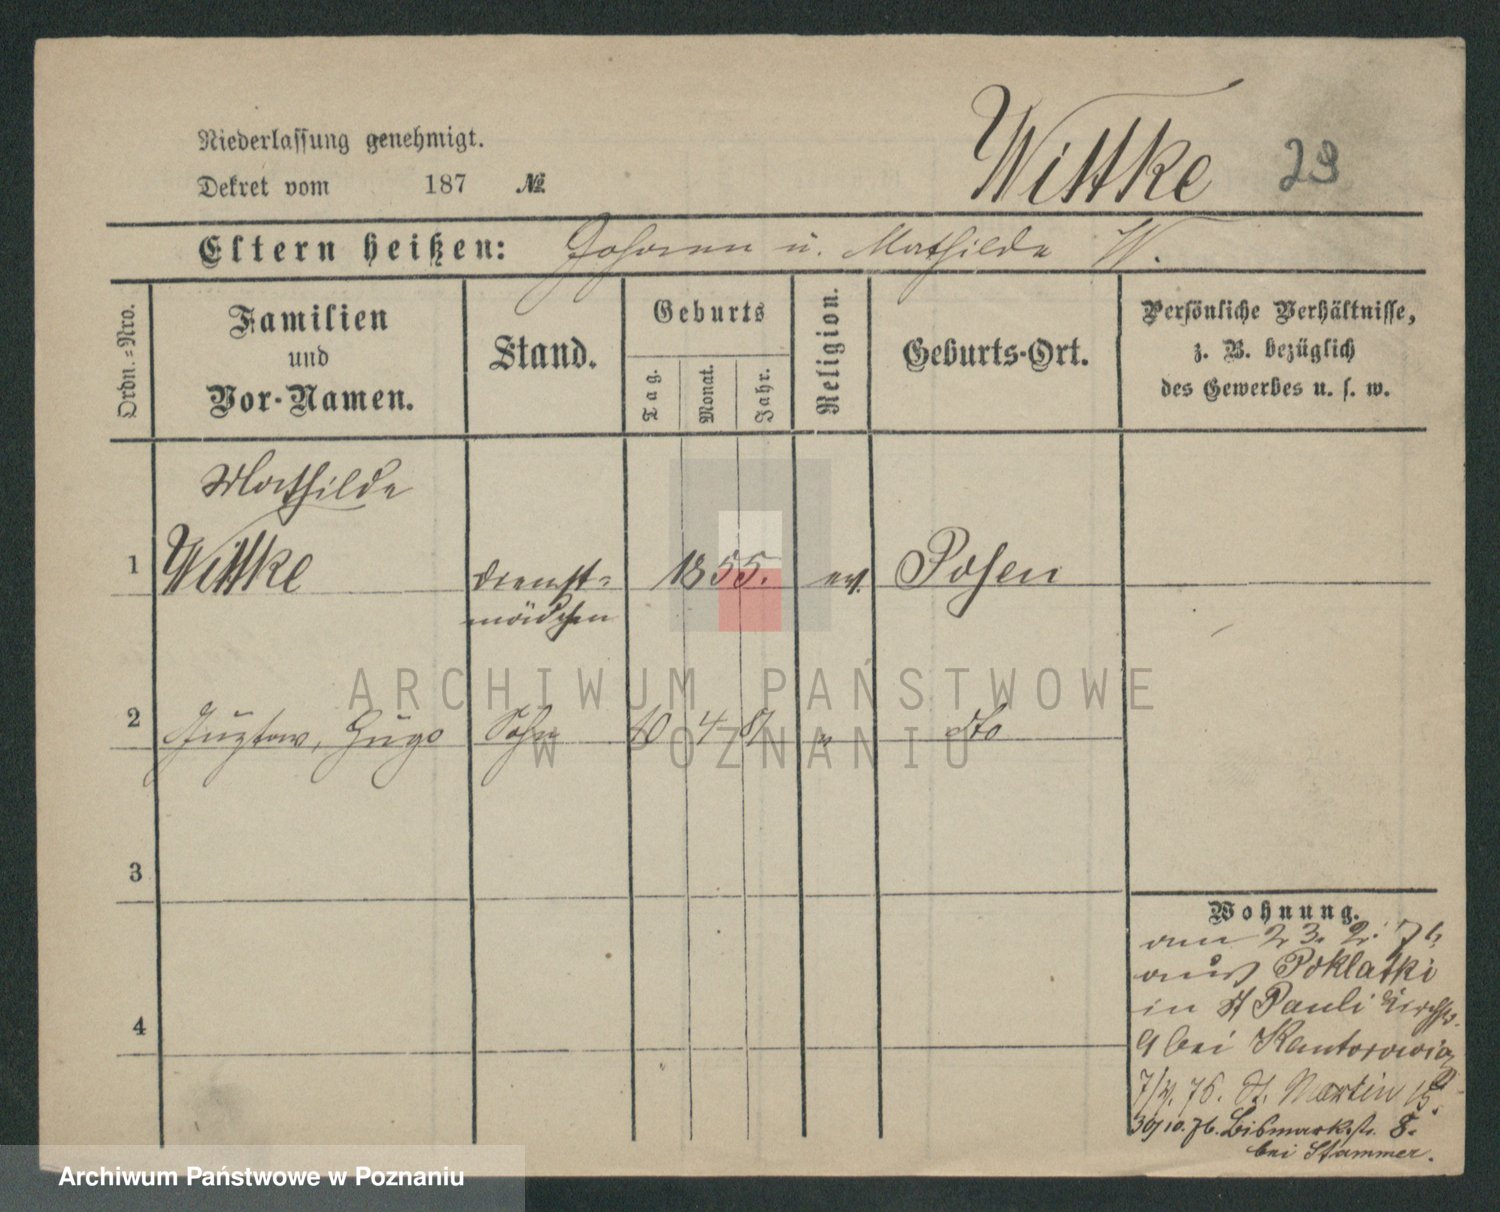 Niederlassung genehmigt.
Dekret vom 187 №
Wittke 29
Eltern heißen: Johann u. Mathilde W.
Ordn.-Nro.
Familien
und
Vor-Namen.
Stand.
Geburts
Tag.
Monat.
Jahr.
Religion.
Geburts-Ort.
Persönliche Verhältnisse,
z. B. bezüglich
des Gewerbes u. s. w.
Mathilde
1 Wittke Dienst= 1855. ev. Posen
mädchen
2 Hugo Sohn 10 4 81 " dto
3
4
Wohnung.
am 23. 2. 76
aus Poklatki
in St Pauli Kirchstr.
9 bei Kantorowicz
76. St. Martin
30/10. 76. Bismarckstr. 8.
bei Stammer.
ARCHIWUM PAŃSTWOWE
W POZNANIU
Archiwum Państwowe w Poznaniu